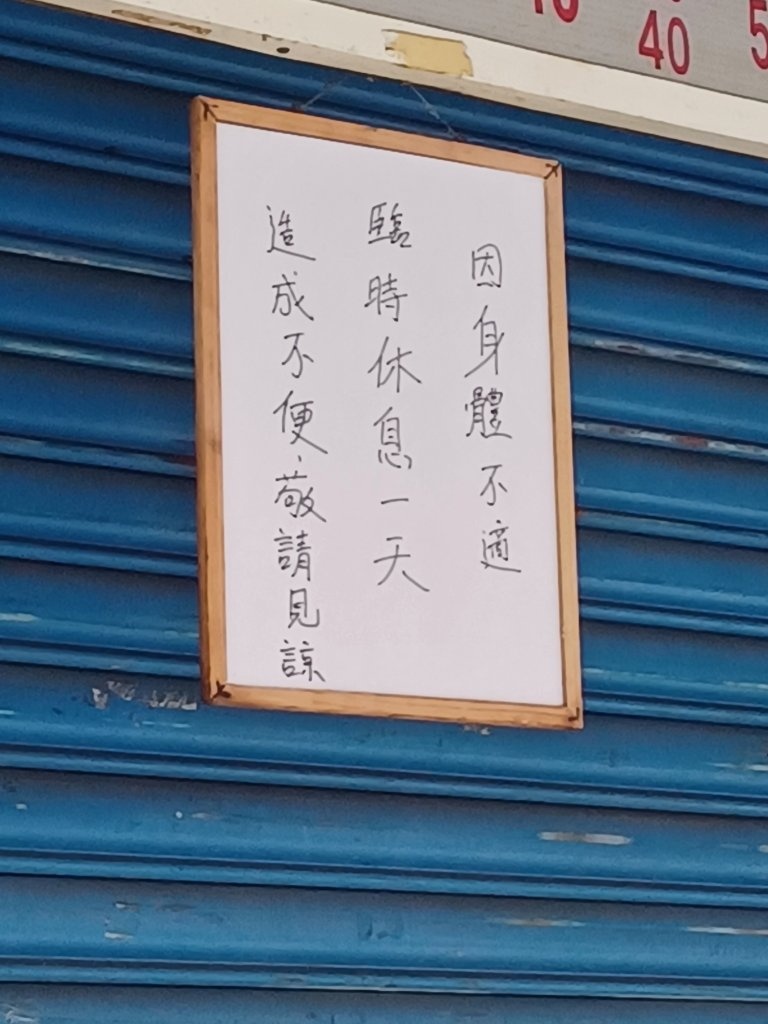 40
因身體不適
臨時休息一天
造成不便、敬請見諒